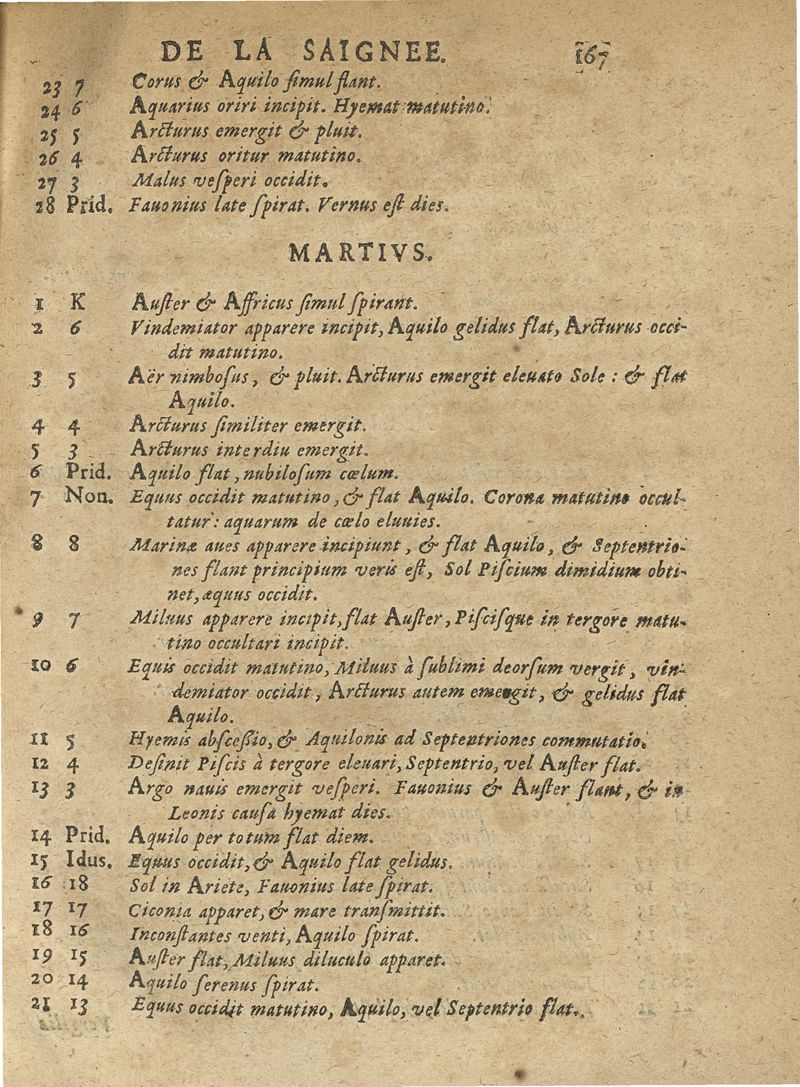 DE LA SAIGNEE. 167
23 7 Corus & Aquilo ſimul flant.
24 6 Aquarius oriri incipit. Hyemat matutino.
25 5 Arcturus emergit & pluit.
26 4 Arcturus oritur matutino.
27 3 Malus veſperi occidit.
28 Prid. Fauonius late ſpirat. Vernus eſt dies.
MARTIVS.
1 K Auſter & Affricus ſimul ſpirant.
2 6 Vindemiator apparere incipit, Aquilo gelidus flat, Arcturus occi-
dit matutino.
3 5 Aër nimboſus, & pluit. Arcturus emergit eleuato Sole : & flat
Aquilo.
4 4 Arcturus ſimiliter emergit.
5 3 Arcturus interdiu emergit.
6 Prid. Aquilo flat, nubiloſum cœlum.
7 Non. Equus occidit matutino, & flat Aquilo. Corona matutino occul-
tatur: aquarum de cœlo eluuies.
8 8 Marinæ aues apparere incipiunt, & flat Aquilo, & Septentrio-
nes flant principium veris eſt, Sol Piſcium dimidium obti-
net, æquus occidit.
9 7 Miluus apparere incipit, flat Auſter, Piſciſque in tergore matu-
tino occultari incipit.
10 6 Equis occidit matutino, Miluus à ſublimi deorſum vergit, vin-
demiator occidit, Arcturus autem emergit, & gelidus flat
Aquilo.
11 5 Hyemis abſceſſio, & Aquilonis ad Septentriones commutatio.
12 4 Deſinit Piſcis à tergore eleuari, Septentrio, vel Auſter flat.
13 3 Argo nauis emergit veſperi. Fauonius & Auſter flant, & in
Leonis cauſa hyemat dies.
14 Prid. Aquilo per totum flat diem.
15 Idus. Equus occidit, & Aquilo flat gelidus.
16 18 Sol in Ariete, Fauonius late ſpirat.
17 17 Ciconia apparet, & mare tranſmittit.
18 16 Inconſtantes venti, Aquilo ſpirat.
19 15 Auſter flat, Miluus diluculo apparet.
20 14 Aquilo ſerenus ſpirat.
21 13 Equus occidit matutino, Aquilo, vel Septentrio flat.